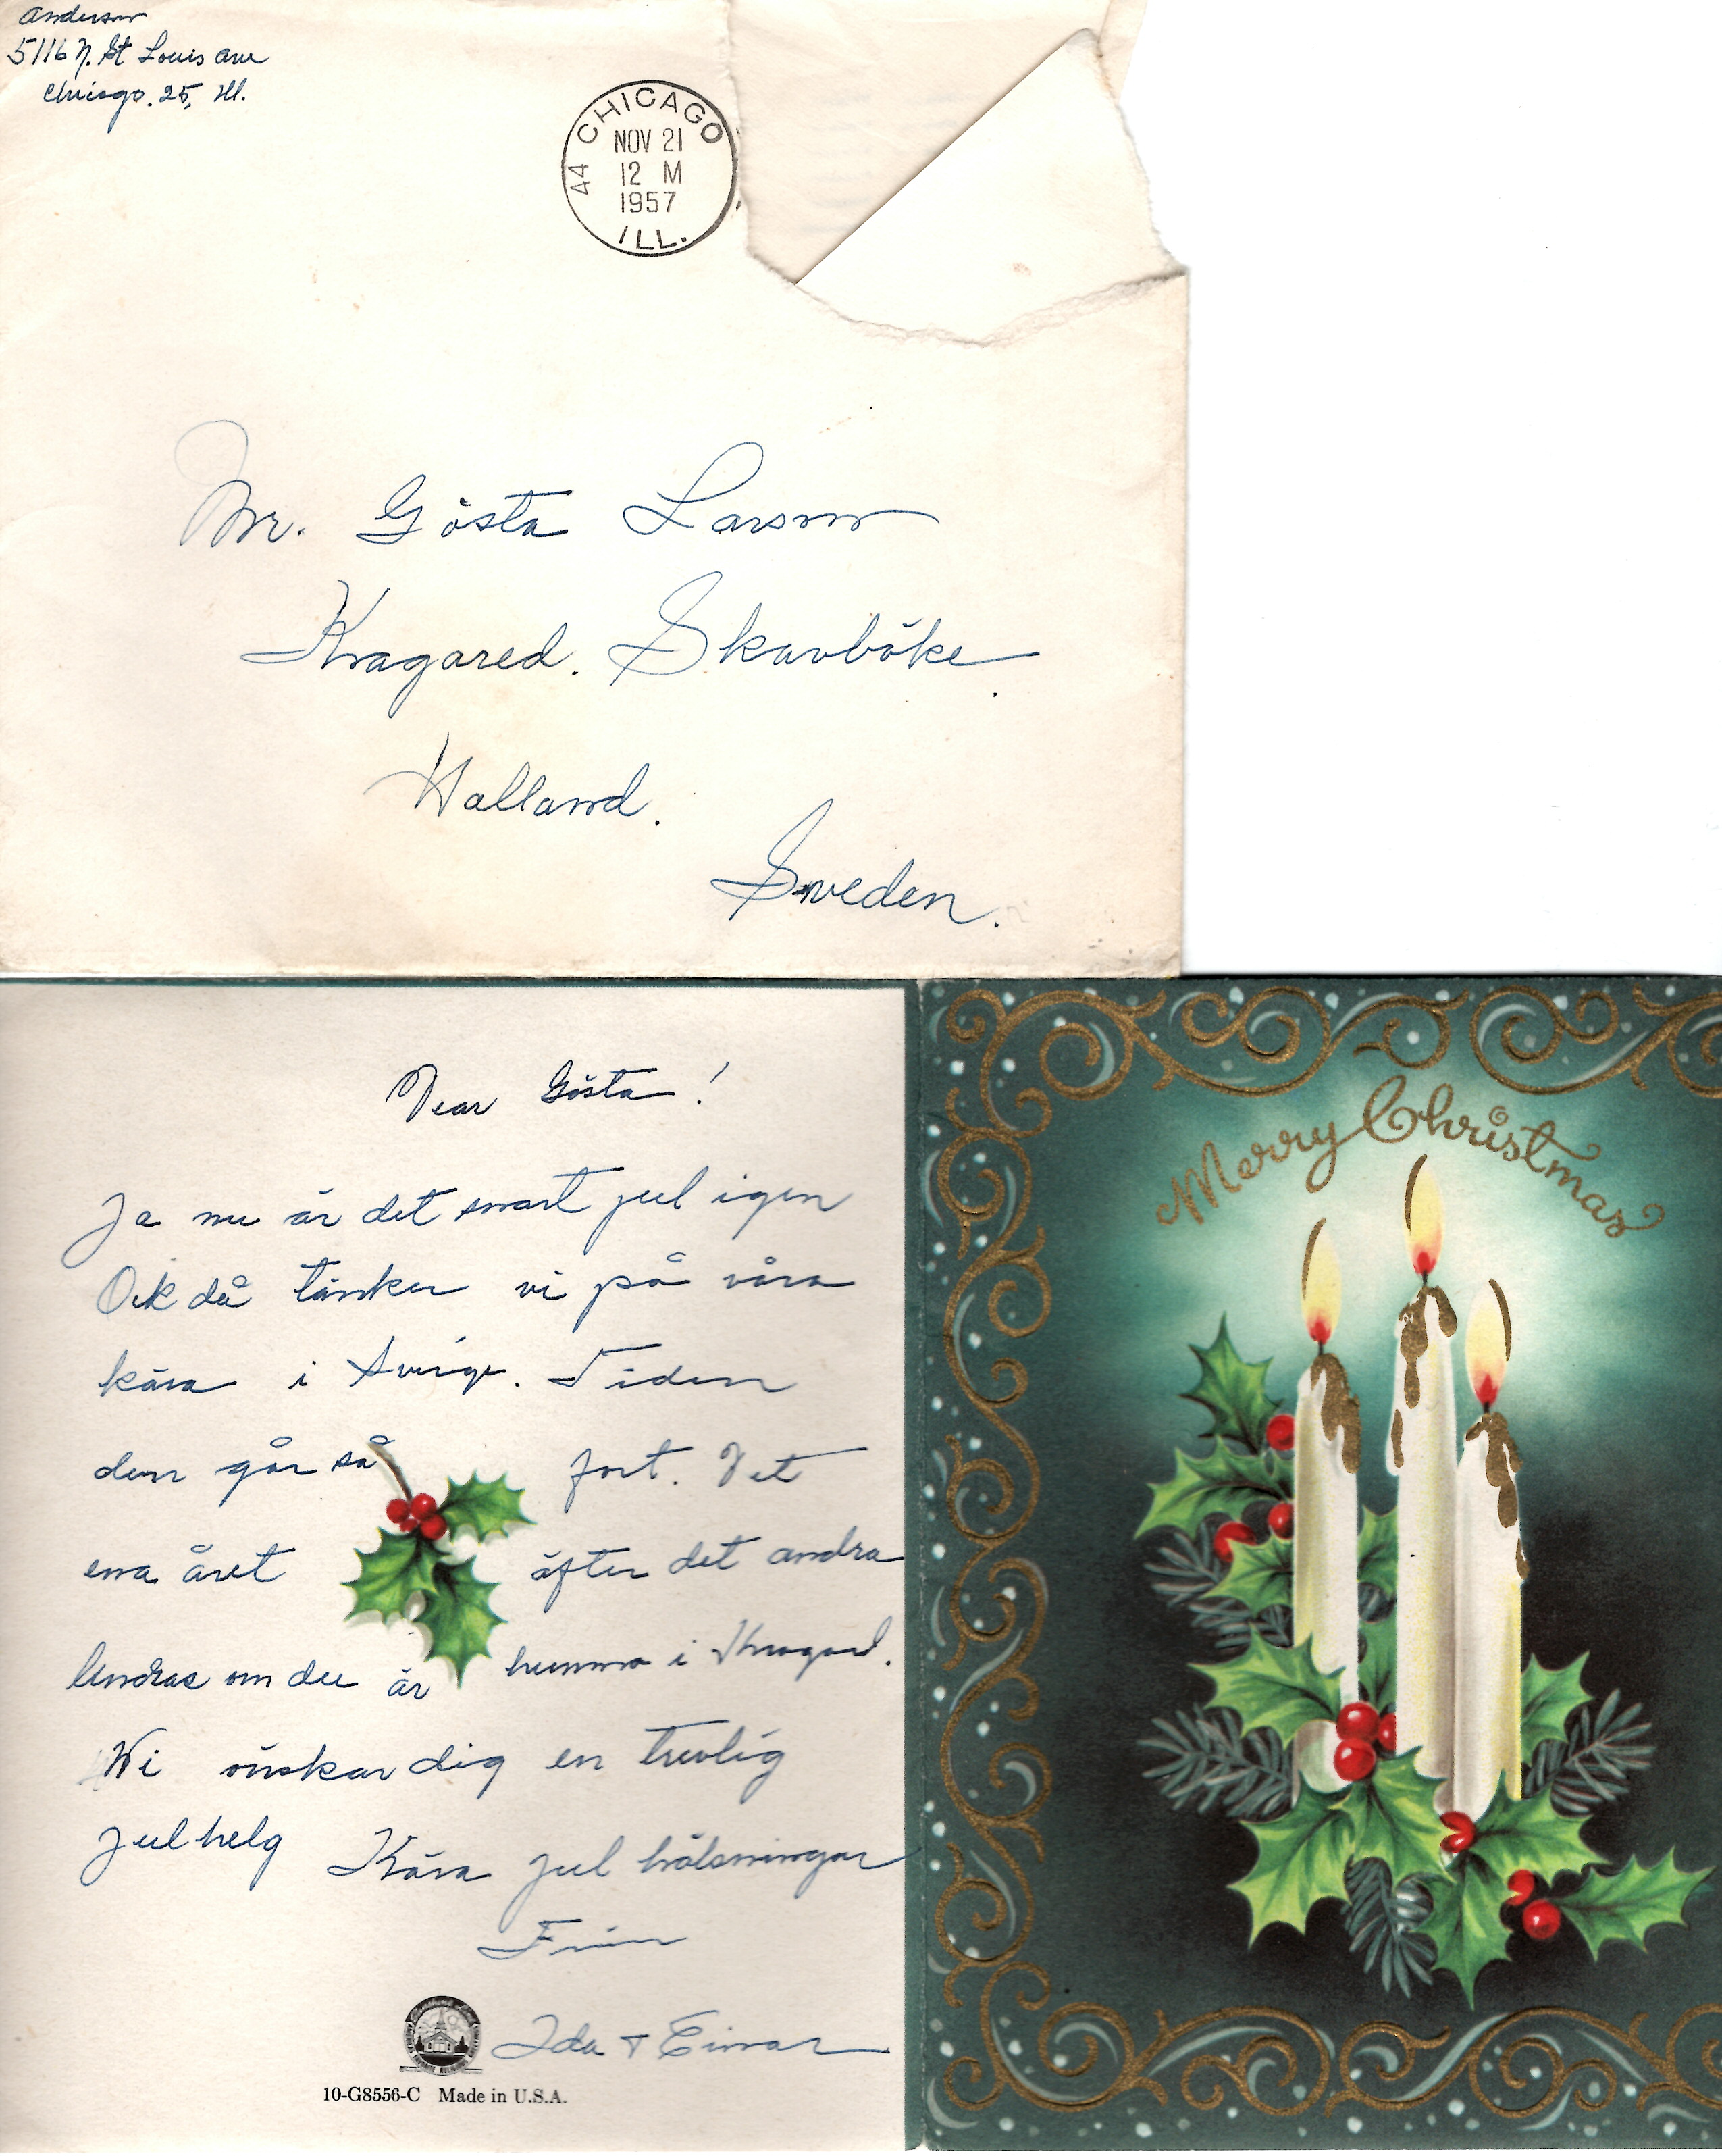 Anderson
5116 N. St Louis Ave
Chicago. 25, Ill.
44 CHICAGO ILL.
NOV 21
12 M
1957
Mr. Gösta Larson
Kragared. Skavböke
Halland.
Sweden.
Dear Gösta!
Ja nu är det snart jul igen
Ock då tänker vi på våra
kära i Sverige. Tiden
den går så fort. Det
ena året äfter det andra
undras om du är hemma i Kragared.
Wi önskar dig en trevlig
Julhelg Kära jul hälsningar
Från
Ida + Einar
10-G8556-C Made in U.S.A.
Merry Christmas